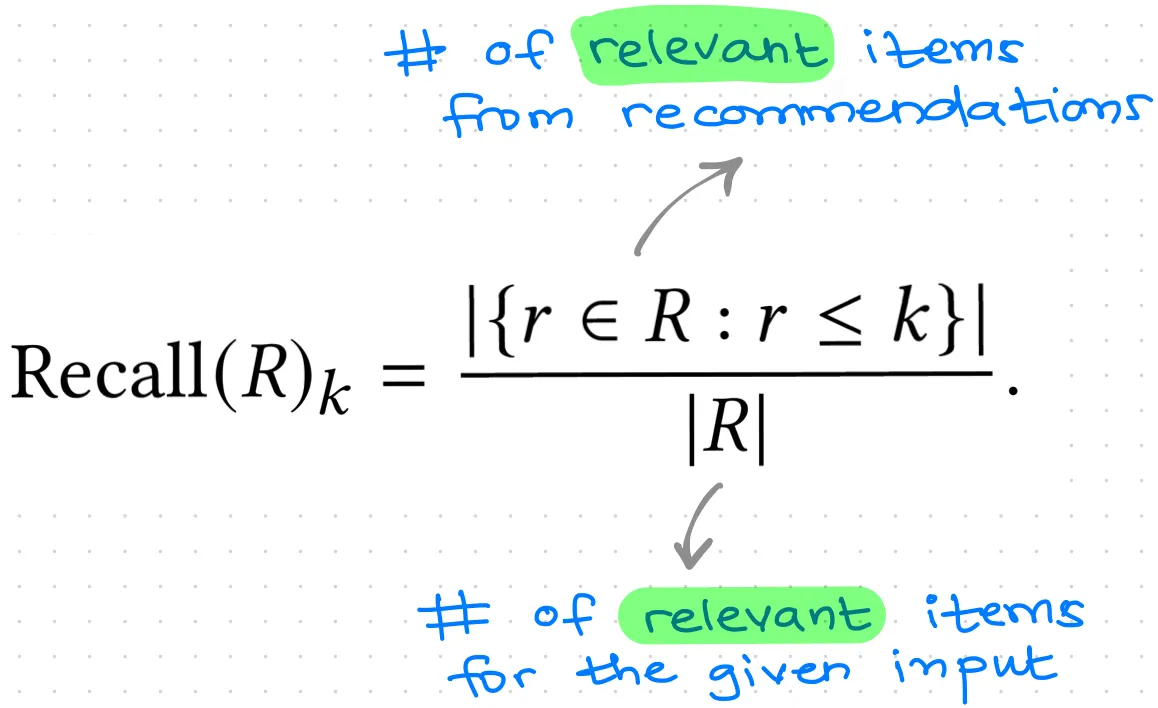 # of relevant items
from recommendations
Recall(R)k = |{r ∈ R : r ≤ k}| / |R| .
# of relevant items
for the given input